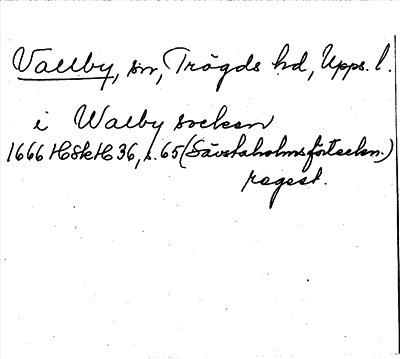 Vallby, sn, Trögds hd, Upps. l.
i Walby sockn
1666 HSkH 36, s. 65 (Sävstaholmsförteckn.)
regest.